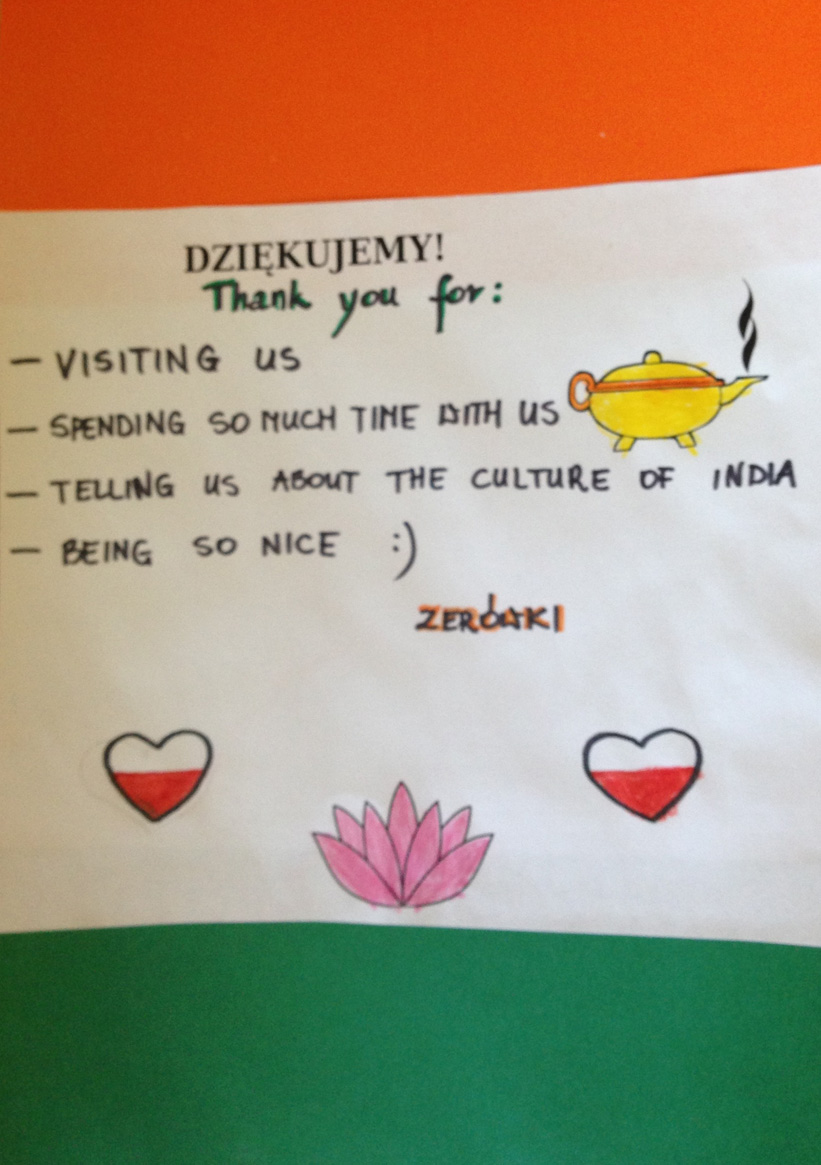 DZIĘKUJEMY!
Thank you for:
— VISITING US
— SPENDING SO MUCH TIME WITH US
— TELLING US ABOUT THE CULTURE OF INDIA
— BEING SO NICE :)
ZERÓWKI